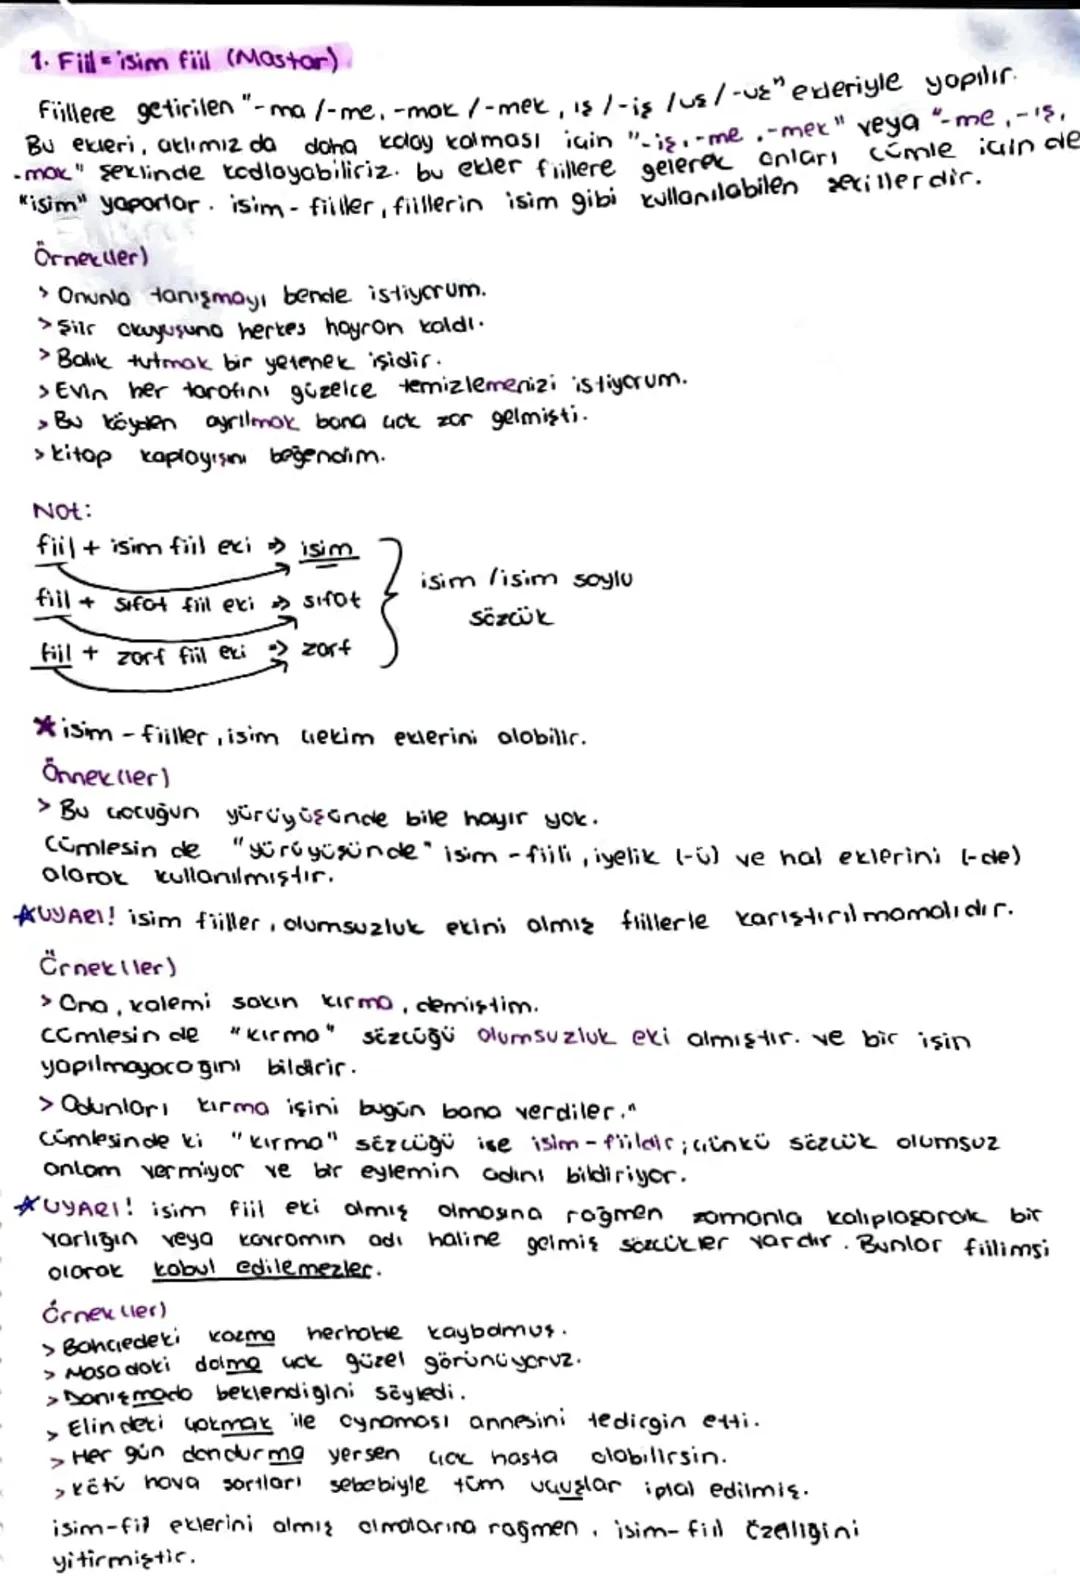 1. Fiil = isim fiil (Mastar)
Fiillere getirilen "-ma /-me, -mak /-mek, ış /-iş /uş /-üş" ekleriyle yapılır.
Bu ekleri, aklımız da daha kolay kalması için "-iş, -me, -mek" veya "-me, -ış,
-mak" şeklinde kodlayabiliriz. bu ekler fiillere gelerek onları cümle için de
"isim" yaparlar. isim - fiiller, fiillerin isim gibi kullanılabilen şekillerdir.
Örnek(ler)
> Onunla tanışmayı bende istiyorum.
> Şiir okuyuşuna herkes hayran kaldı.
> Balık tutmak bir yetenek işidir.
> Evin her tarafını güzelce temizlemenizi istiyorum.
> Bu köyden ayrılmak bana çok zor gelmişti.
> kitap kaplayışını beğendim.
Not:
fiil + isim fiil eki ⇒ isim
fiil + sıfat fiil eki ⇒ sıfat
fiil + zarf fiil eki ⇒ zarf
isim /isim soylu
sözcük
* isim - fiiller, isim çekim eklerini alabilir.
Örnek(ler)
> Bu çocuğun yürüyüşünde bile hayır yok.
Cümlesin de "yürüyüşünde" isim - fiili, iyelik (-ü) ve hal eklerini (-de)
alarak kullanılmıştır.
*UYARI! isim fiiller, olumsuzluk ekini almış fiillerle karıştırılmamalıdır.
Örnek(ler)
> Ona, kalemi sakın kırma, demiştim.
Cümlesin de "kırma" sözcüğü olumsuzluk eki almıştır. ve bir işin
yapılmayacağını bildirir.
> Odunları kırma işini bugün bana verdiler."
Cümlesinde ki "kırma" sözcüğü ise isim - fiildir; çünkü sözcük olumsuz
anlam vermiyor ve bir eylemin adını bildiriyor.
*UYARI! isim fiil eki almış olmasına rağmen zamanla kalıplaşarak bir
varlığın veya kavramın adı haline gelmiş sözcükler vardır. Bunlar fiilimsi
olarak kabul edilemezler.
Örnek(ler)
> Bahçedeki kazma herhalde kaybolmuş.
> Masadaki dolma çok güzel görünüyoruz.
> Danışmada beklendiğini söyledi.
> Elindeki çakmak ile oynaması annesini tedirgin etti.
> Her gün dondurma yersen çok hasta olabilirsin.
> Kötü hava şartları sebebiyle tüm uçuşlar iptal edilmiş.
isim-fiil eklerini almış olmalarına rağmen, isim-fiil özelliğini
yitirmiştir.